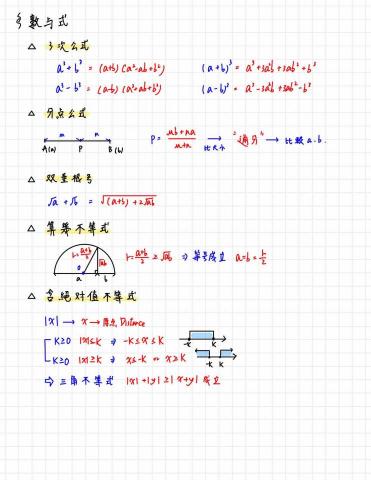 数与式
△ 3次公式
a³+b³ = (a+b)(a²-ab+b²) (a+b)³ = a³+3a²b+3ab²+b³
a³-b³ = (a-b)(a²+ab+b²) (a-b)³ = a³-3a²b+3ab²-b³
△ 分点公式
m n
A(a) P B(b)
P = mb+na / m+n → "通分" → 比較 a.b.
△ 双重根号
√a+√b = √(a+b)+2√ab
△ 算幾不等式
r = a+b/2 √ab
a b
r = a+b/2 ≥ √ab ⇒ 等号成立 a=b=r/2
△ 含絕对值不等式
|x| → x → 原点 Distance
K≥0 |x|≤K ⇒ -K≤x≤K -K K
K≥0 |x|≥K ⇒ x≤-K or x≥K -K K
⇒ 三角不等式 |x|+|y|≥|x+y| 成立